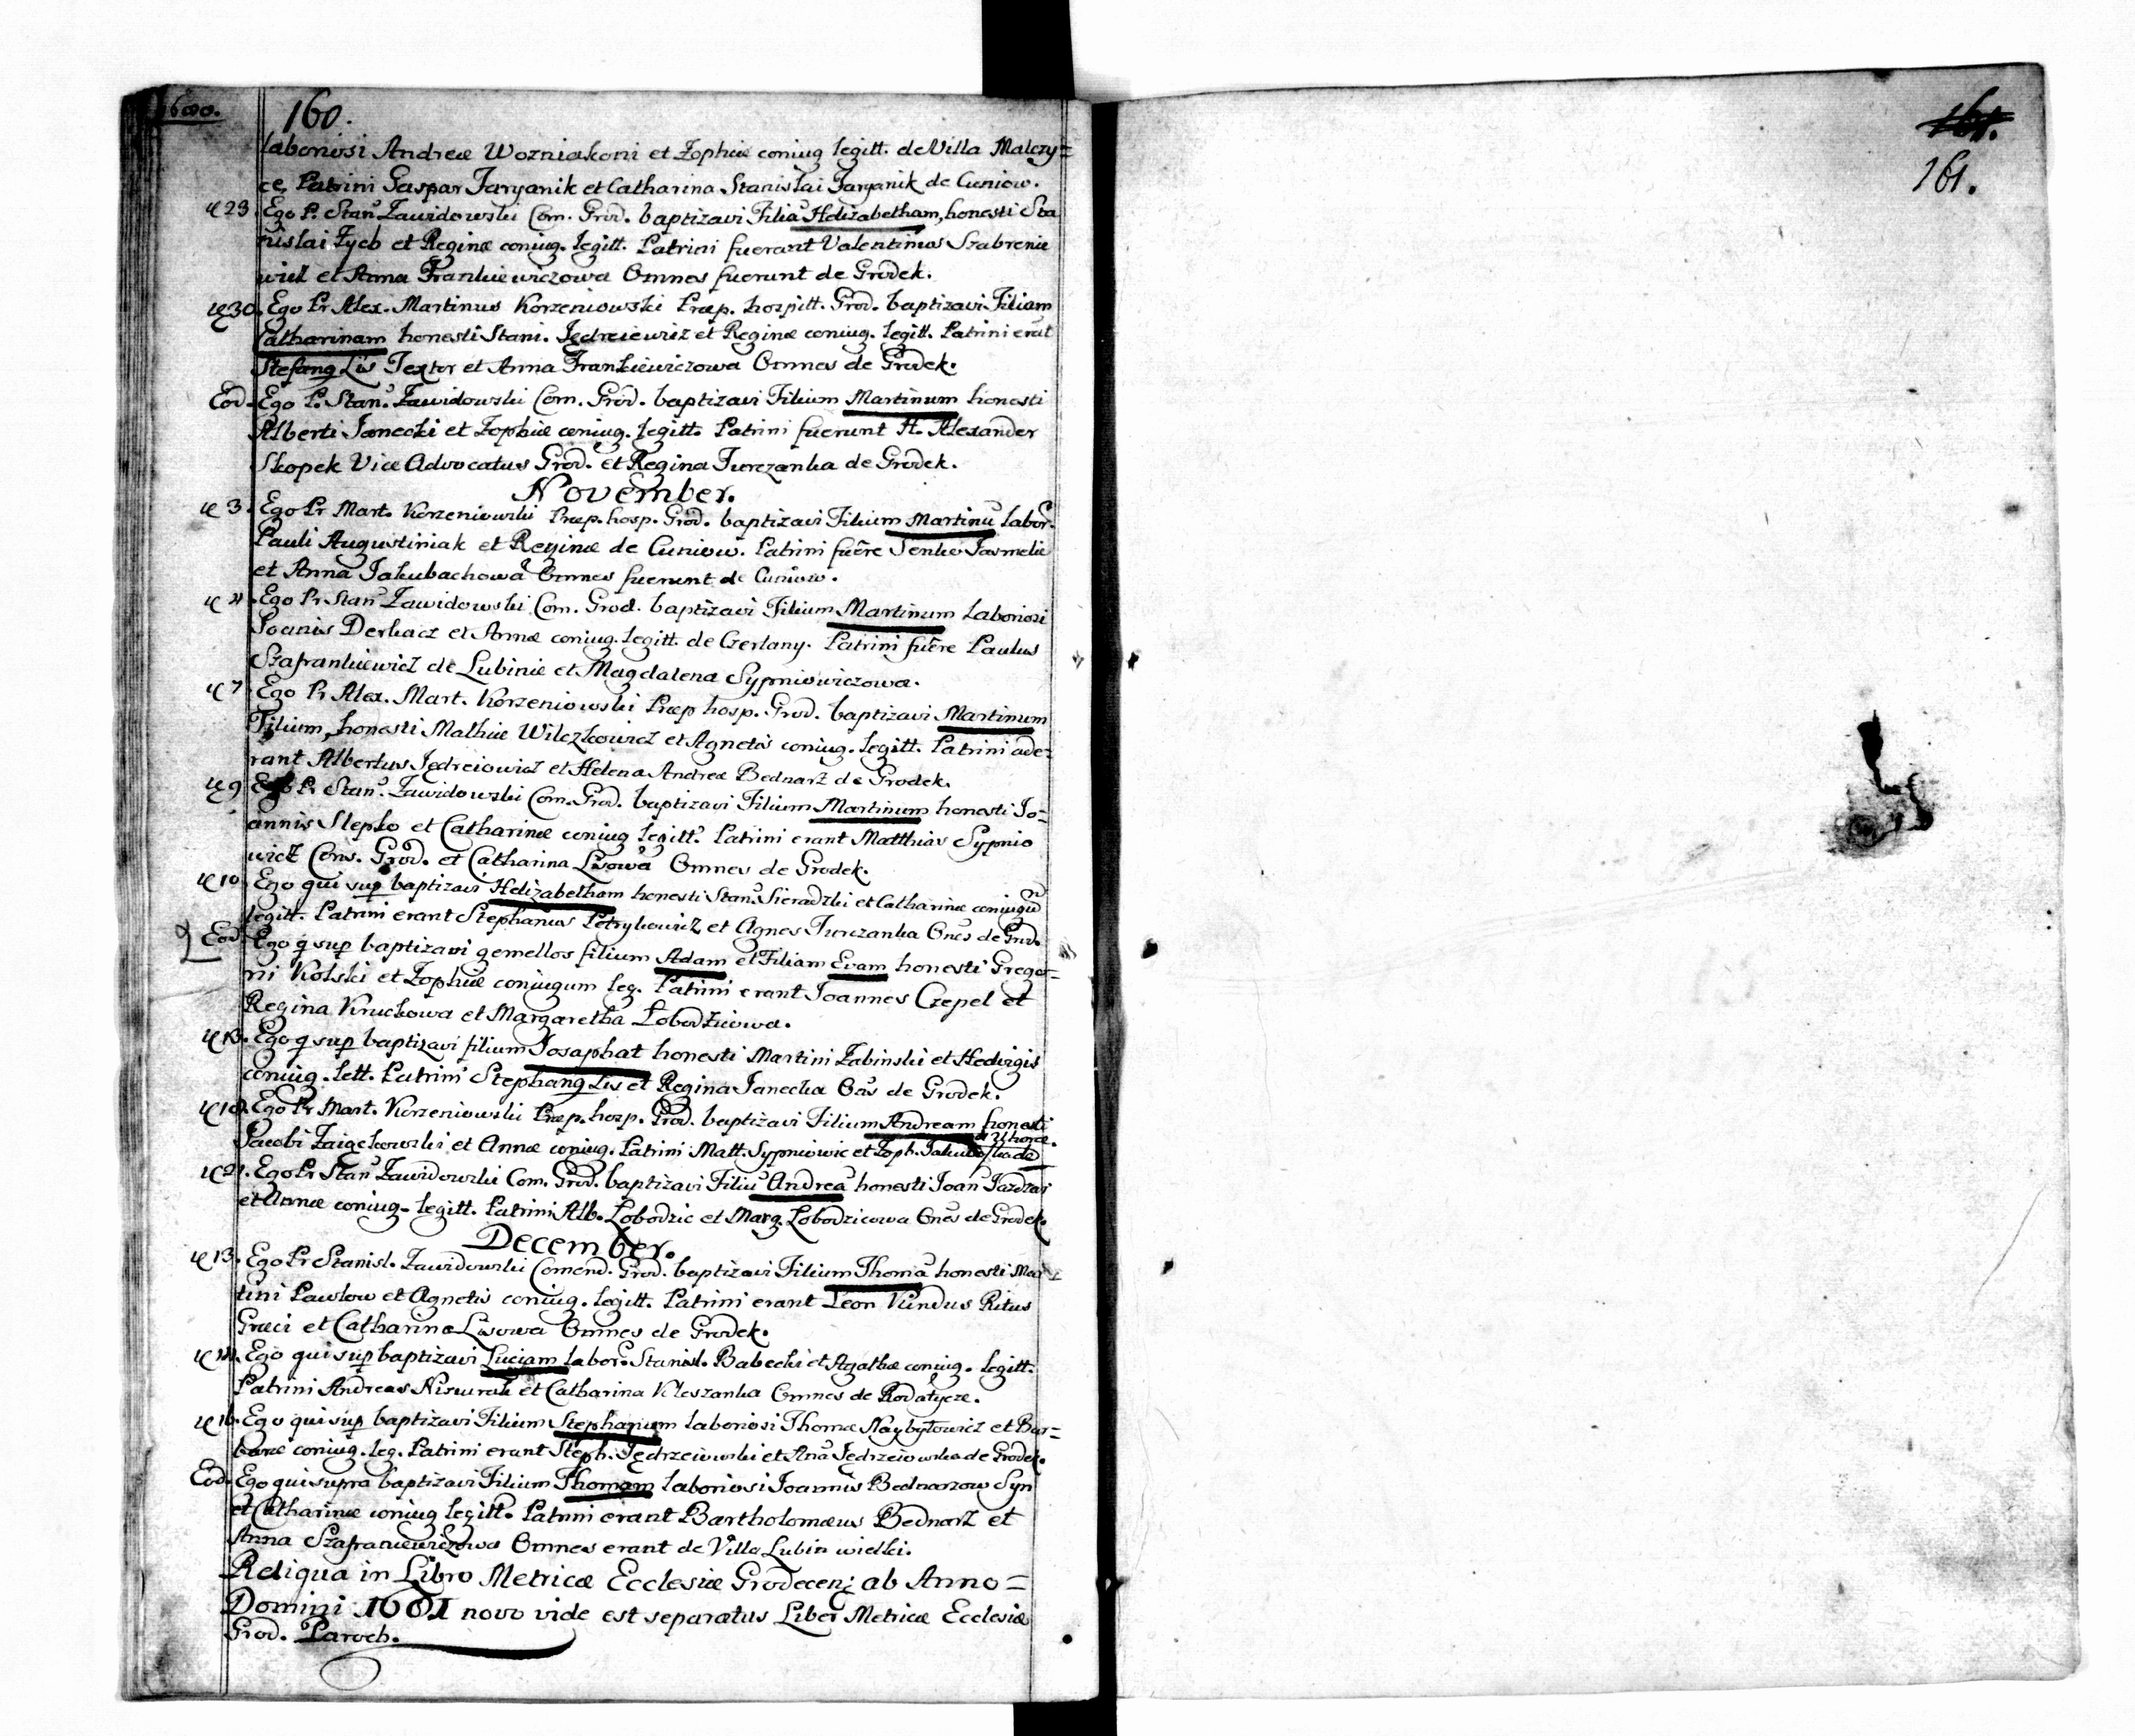 1680.
160.
laboriosi Andreæ Wozniakoni et Zophiæ coniug legitt. de Villa Malczy=
ce, Patrini Gaspar Jaryanik et Catharina Stanislai Jaryanik de Cuniow.
23. Ego P. Stan. Zawidowski Com. Grod. baptizavi Filiã Helizabetham, honesti Sta
nislai Zych et Reginæ coniug. legitt. Patrini fuerant Valentinus
et Anna Frankiewiczowa Omnes fuerunt de Grodek.
30. Ego Pr Alex. Martinus Korzeniowski Præp. hospitt. Grod. baptizavi Filiam
Catharinam honesti Stani. Jędreiewicz et Reginæ coniug. legitt. Patrini erãt
Stefanq Lis Textor et Anna Frankiewiczowa Omnes de Grodek.
Eod. Ego P. Stan. Zawidowski Com. Grod. baptizavi Filium Martinum honesti
Alberti Janecki et Zophiæ coniug. legitt. Patrini fuerunt H. Alexander
Skopek Vice Advocatus Grod. et Regina Turczanka de Grodek.
November.
3. Ego Pr Mart. Korzeniowski Præp. hosp. Grod. baptizavi Filium Martinũ labor.
Pauli Augustiniak et Reginæ de Cuniow. Patrini fuere Senko
et Anna Jakubachowa Omnes fuerunt de Cuniow.
Ego Pr Stan Zawidowski Com. Grod. baptizavi Filium Martinum Laboriosi
Joanis Derkacz et Annæ coniug. legitt. de Czerlany. Patrini fuere Paulus
Szafrankiewicz de Lubinie et Magdalena Sypniowiczowa.
7. Ego Pr Alex. Mart. Korzeniowski Præp hosp. Grod. baptizavi Martinum
Filium, honesti Mathiæ Wilczkowicz et Agnetis coniug. legitt. Patrini ade=
rant Albertus Jędreiowicz et Helena Andreæ Bednarz de Grodek.
9. Ego Pr Stan. Zawidowski Com. Grod. baptizavi Filium Martinum honesti Jo=
annis Slepko et Catharinæ coniug legitt. Patrini erant Matthias Sypnio
wicz Cons. Grod. et Catharina Lisowa Omnes de Grodek.
10. Ego qui sup baptizavi Helizabetham honesti Stan. Sieradzki et Catharinæ coniugũ
legitt. Patrini erant Stephanus Petrykowicz et Agnes Turczanka Oñes de Grod.
Eod. Ego q sup baptizavi gemellos filium Adam et Filiam Evam honesti Grego=
rii Kolski et Zophiæ coniugum leg. Patrini erant Joannes Czepel et
Regina Kruckowa et Margaretha Lobodzicowa.
13. Ego q sup baptizavi filium Josaphat honesti Martini Zabinski et Hedvigis
coniug. lett. Patrini Stephanq Lis et Regina Janecka Oñs de Grodek.
18. Ego Pr Mart. Korzeniowski Præp. hosp. Grod. baptizavi Filium Andream honesti
Jacobi Zaigckowski et Annæ coniug. Patrini Matt. Sypniowic et Zoph.
21. Ego Pr Stan Zawidowski Com. Grod. baptizavi Filiũ Andreã honesti Joan
et Annæ coniug. legitt. Patrini Alb. Lobodzic et Marg. Lobodzicowa Oñes de Grodek.
December.
13. Ego Pr Stanisl. Zawidowski Comend. Grod. baptizavi Filium Thomã honesti Mar=
tini Pawlow et Agnetis coniug. legitt. Patrini erant Leon Kundus Ritus
Græci et Catharina Lisowa Omnes de Grodek.
Ego qui sup baptizavi Luciam labor. Stanisl. Babecki et Agathæ coniug. legitt.
Patrini Andreas et Catharina Kleszanka Omnes de Rodatycze.
16. Ego qui sup baptizavi Filium Stephanum laboriosi Thomæ Naybyłowicz et Bar=
baræ coniug. leg. Patrini erant Steph. Jędrzeiowski et Anã Jędrzeiowska de Grodek.
Eod. Ego qui supra baptizavi Filium Thomam laboriosi Joannis Bednarzow Syn
et Catharinæ coniug legitt. Patrini erant Bartholomæus Bednarz et
Anna Szafraniewiczowa Omnes erant de Villa Lubin wielki.
Reliqua in Libro Metricæ Ecclesiæ Grodecenˢ ab Anno=
Domini 1681 novo vide est separatus Liber Metricæ Ecclesiæ
Grod. Paroch.
161.
161.